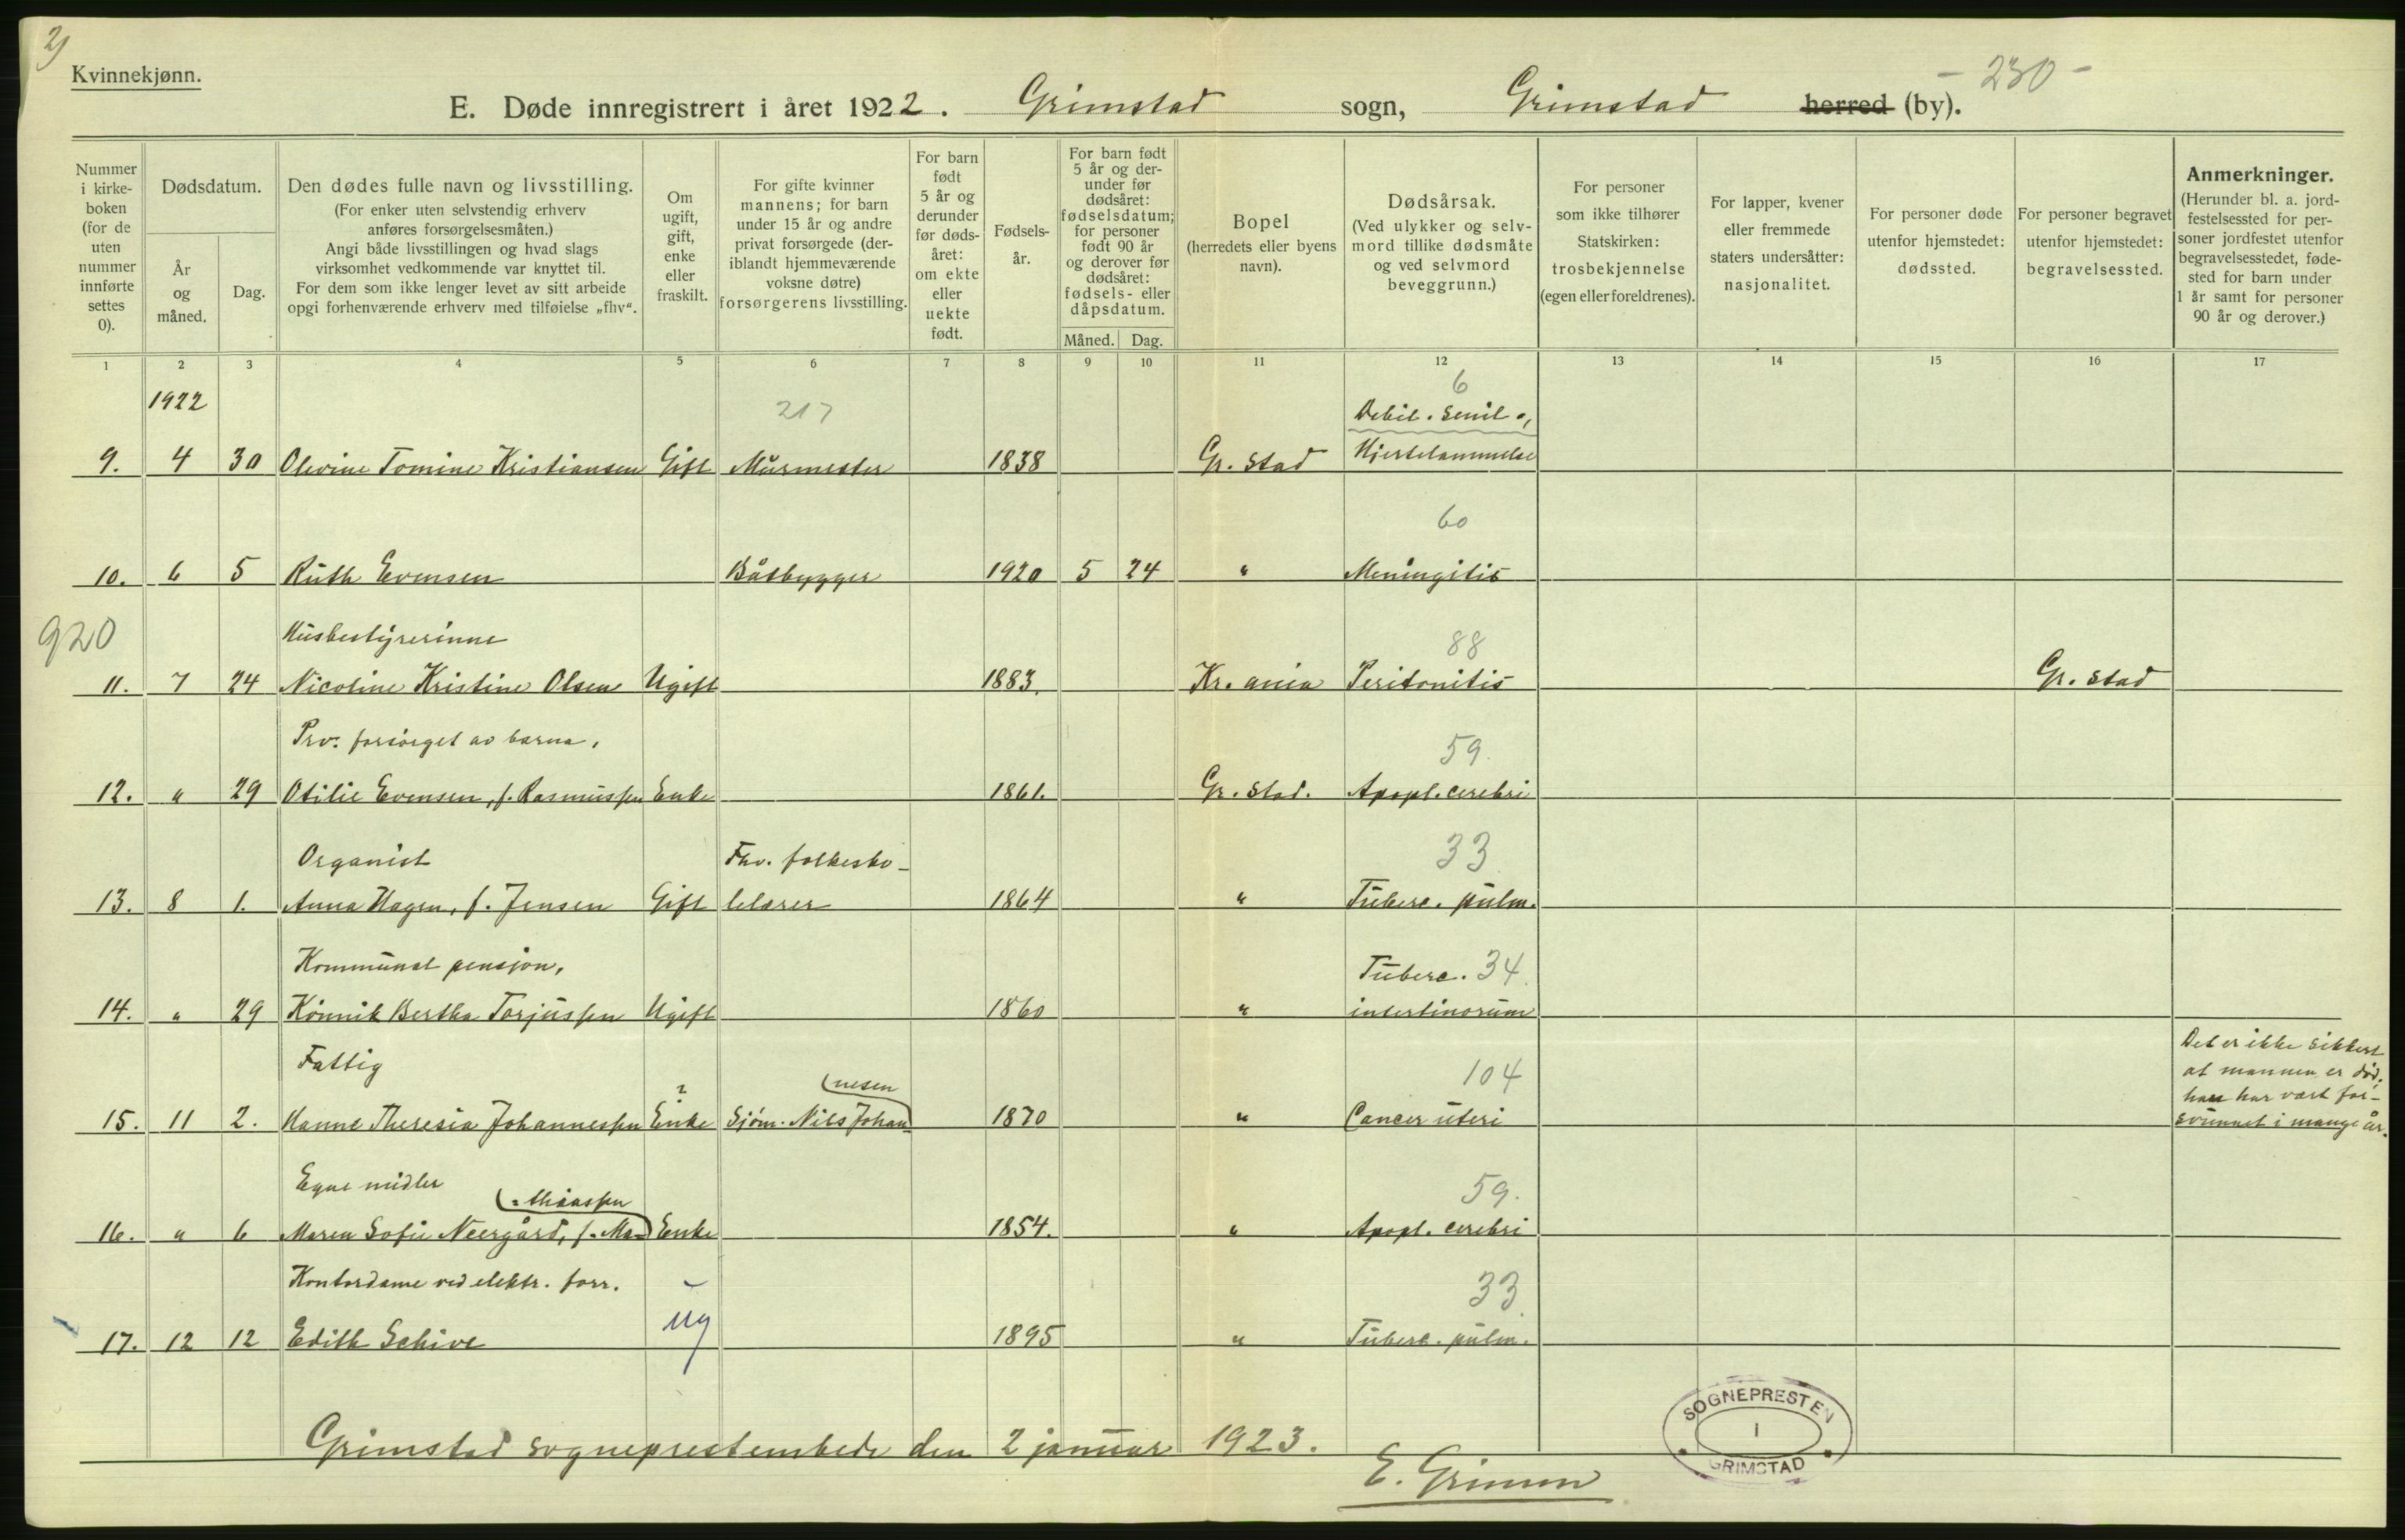 2)
Kvinnekjønn.
E. Døde innregistrert i året 1922. Grimstad sogn, Grimstad herred (by). - 230 -
Nummer i kirke- boken (for de uten nummer innførte settes 0).
Dødsdatum.
År og måned.
Dag.
Den dødes fulle navn og livsstilling.
(For enker uten selvstendig erhverv
anføres forsørgelsesmåten.)
Angi både livsstillingen og hvad slags
virksomhet vedkommende var knyttet til.
For dem som ikke lenger levet av sitt arbeide
opgi forhenværende erhverv med tilføielse „fhv“.
Om ugift, gift, enke eller fraskilt.
For gifte kvinner
mannens; for barn
under 15 år og andre
privat forsørgede (der-
iblandt hjemmeværende
voksne døtre)
forsørgerens livsstilling.
For barn født 5 år og derunder før døds- året: om ekte eller uekte født.
Fødsels- år.
For barn født
5 år og der-
under før
dødsåret:
fødselsdatum;
for personer
født 90 år
og derover før
dødsåret:
fødsels- eller
dåpsdatum.
Måned. Dag.
Bopel
(herredets eller byens
navn).
Dødsårsak.
(Ved ulykker og selv-
mord tillike dødsmåte
og ved selvmord
beveggrunn.)
For personer
som ikke tilhører
Statskirken:
trosbekjennelse
(egen eller foreldrenes).
For lapper, kvener
eller fremmede
staters undersåtter:
nasjonalitet.
For personer døde
utenfor hjemstedet:
dødssted.
For personer begravet
utenfor hjemstedet:
begravelsessted.
Anmerkninger.
(Herunder bl. a. jord-
festelsessted for per-
soner jordfestet utenfor
begravelsesstedet, føde-
sted for barn under
1 år samt for personer
90 år og derover.)
1 2 3 4 5 6 7 8 9 10 11 12 13 14 15 16 17
1922 217 6
Debil. senil.,
9. 4 30 Olevine Tomine Kristiansen Gift Murmester 1838 Gr.stad Hjertelammelse
60
10. 6 5 Ruth Evensen Båtbygger 1920 5 24 " Meningitis
920 Husbestyrerinne 88
11. 7 24 Nicoline Kristine Olsen Ugift 1883. Kr.ania Peritonitis Gr.stad
Prv. forsørget av barna. 59.
12. " 29 Otilie Evensen, f. Rasmussen Enke 1861. Gr.stad. Apopl. cerebri
Organist Fhv. folkesko- 33
13. 8 1. Anna Hagen, f. Jensen Gift lelærer 1864 " Tuberc. pulm.
Kommunal pensjon. Tuberc. 34
14. " 29 Kinnik Bertha Torjussen Ugift 1860 " intestinorum
Fattig ? (nesen 104
15. 11 2. Hanne Theresia Johannessen Enke Sjøm. Nils Johan 1870 " Cancer uteri
Det er ikke sikkert
at mannen er død;
han har vært for-
svunnet i mange år.
Egne midler (=thiassen 59.
16. " 6 Maren Sofie Neergård, f. Ma= Enke 1854. " Apopl. cerebri
Kontordame ved elektr. forr. - 33
17. 12 12 Edith Schive ug 1895 " Tuberc. pulm.
Grimstad sogneprestembede den 2 januar 1923.
E. Grimm
SOGNEPRESTEN
I
GRIMSTAD